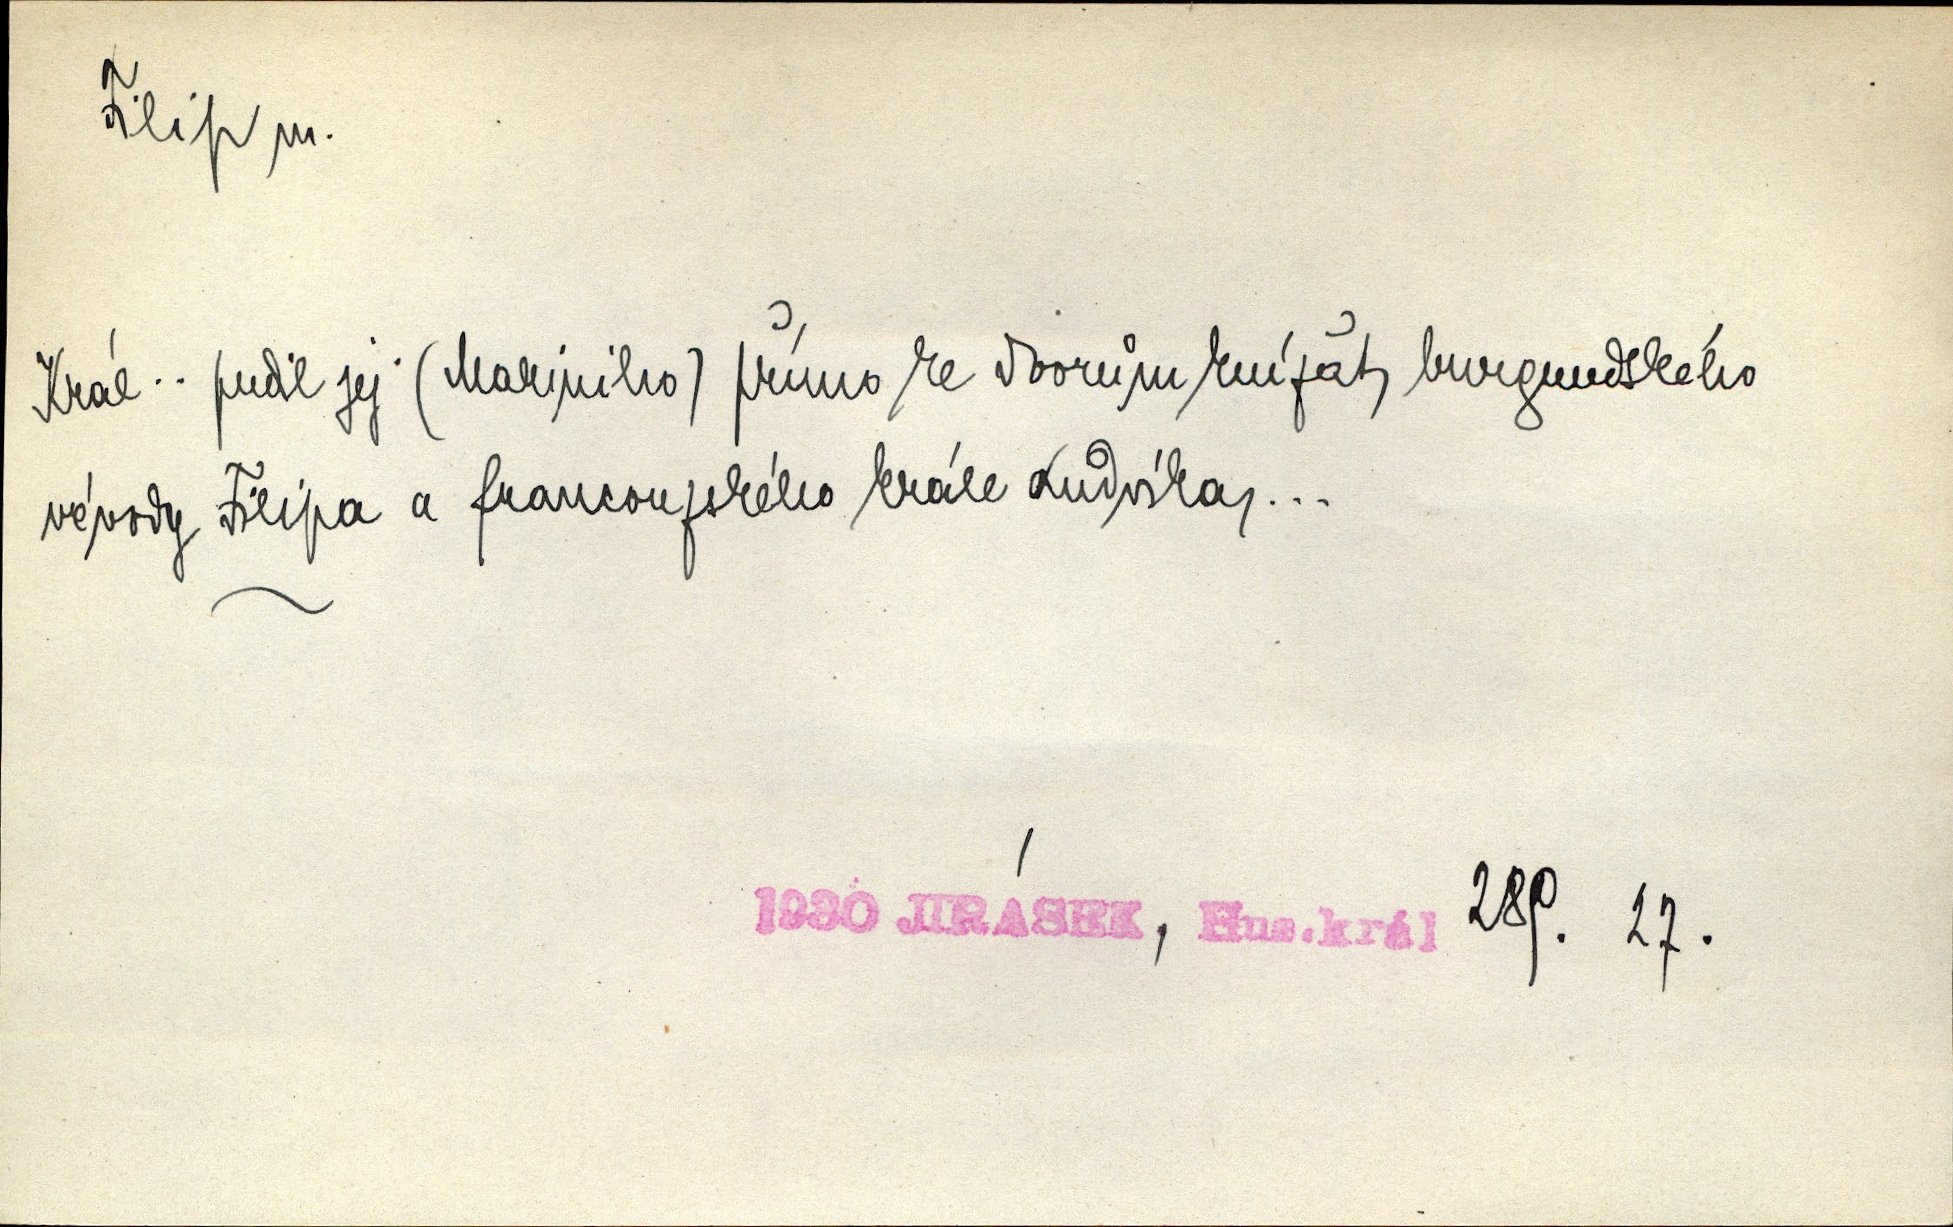 Filip m.
Král .. pudil jej (Marjniho) přímo ke dvorům knížat, burgundského
vévody Filipa a francouzského krále Ludvíka, ...
1930 JIRÁSEK, Hus.král 289. 27.